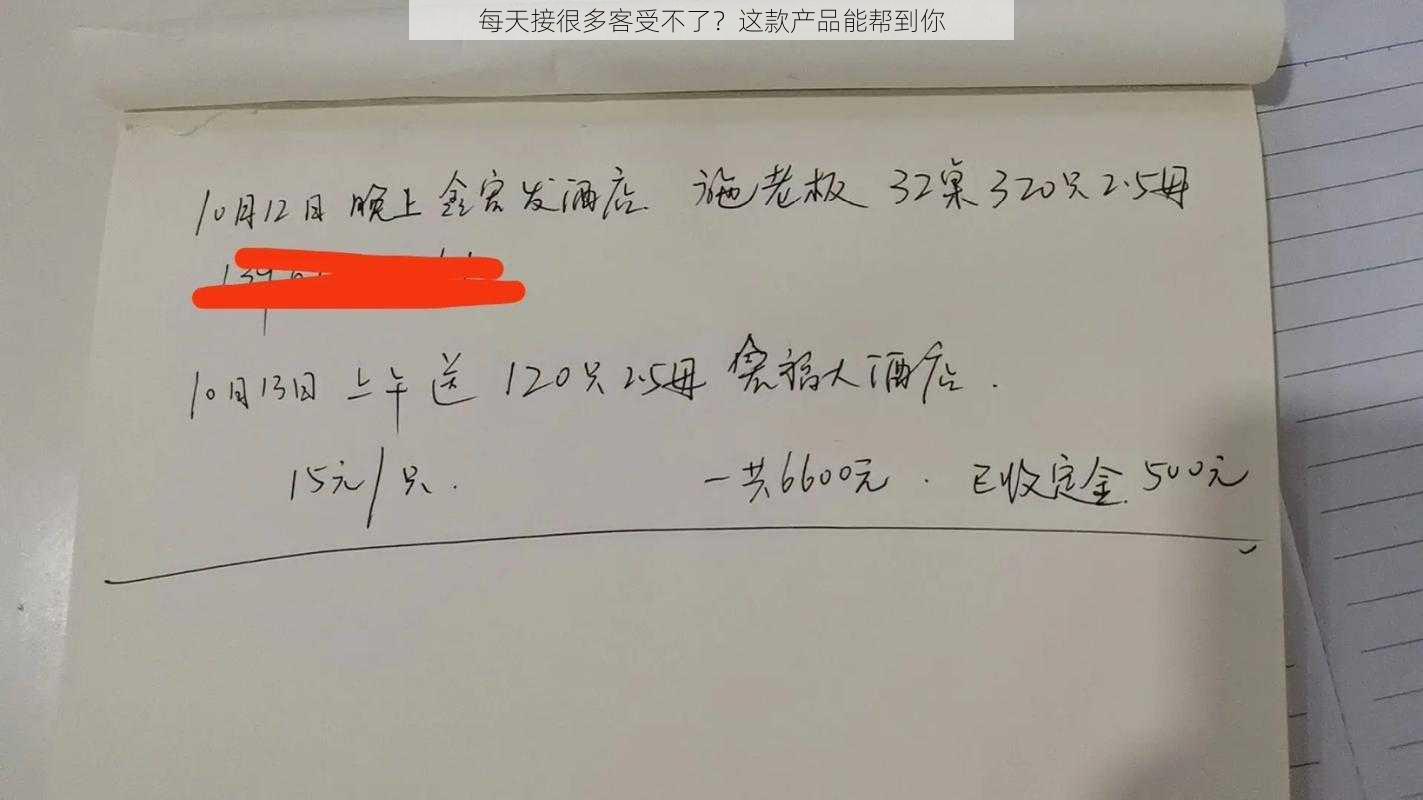 每天接很多客受不了？这款产品能帮到你
10月12日 晚上 金客发酒店 施老板 32桌 320只 2.5母
10月13日 上午 送 120只 2.5母 福大酒店.
15元/只. 一共6600元. 已收定金500元